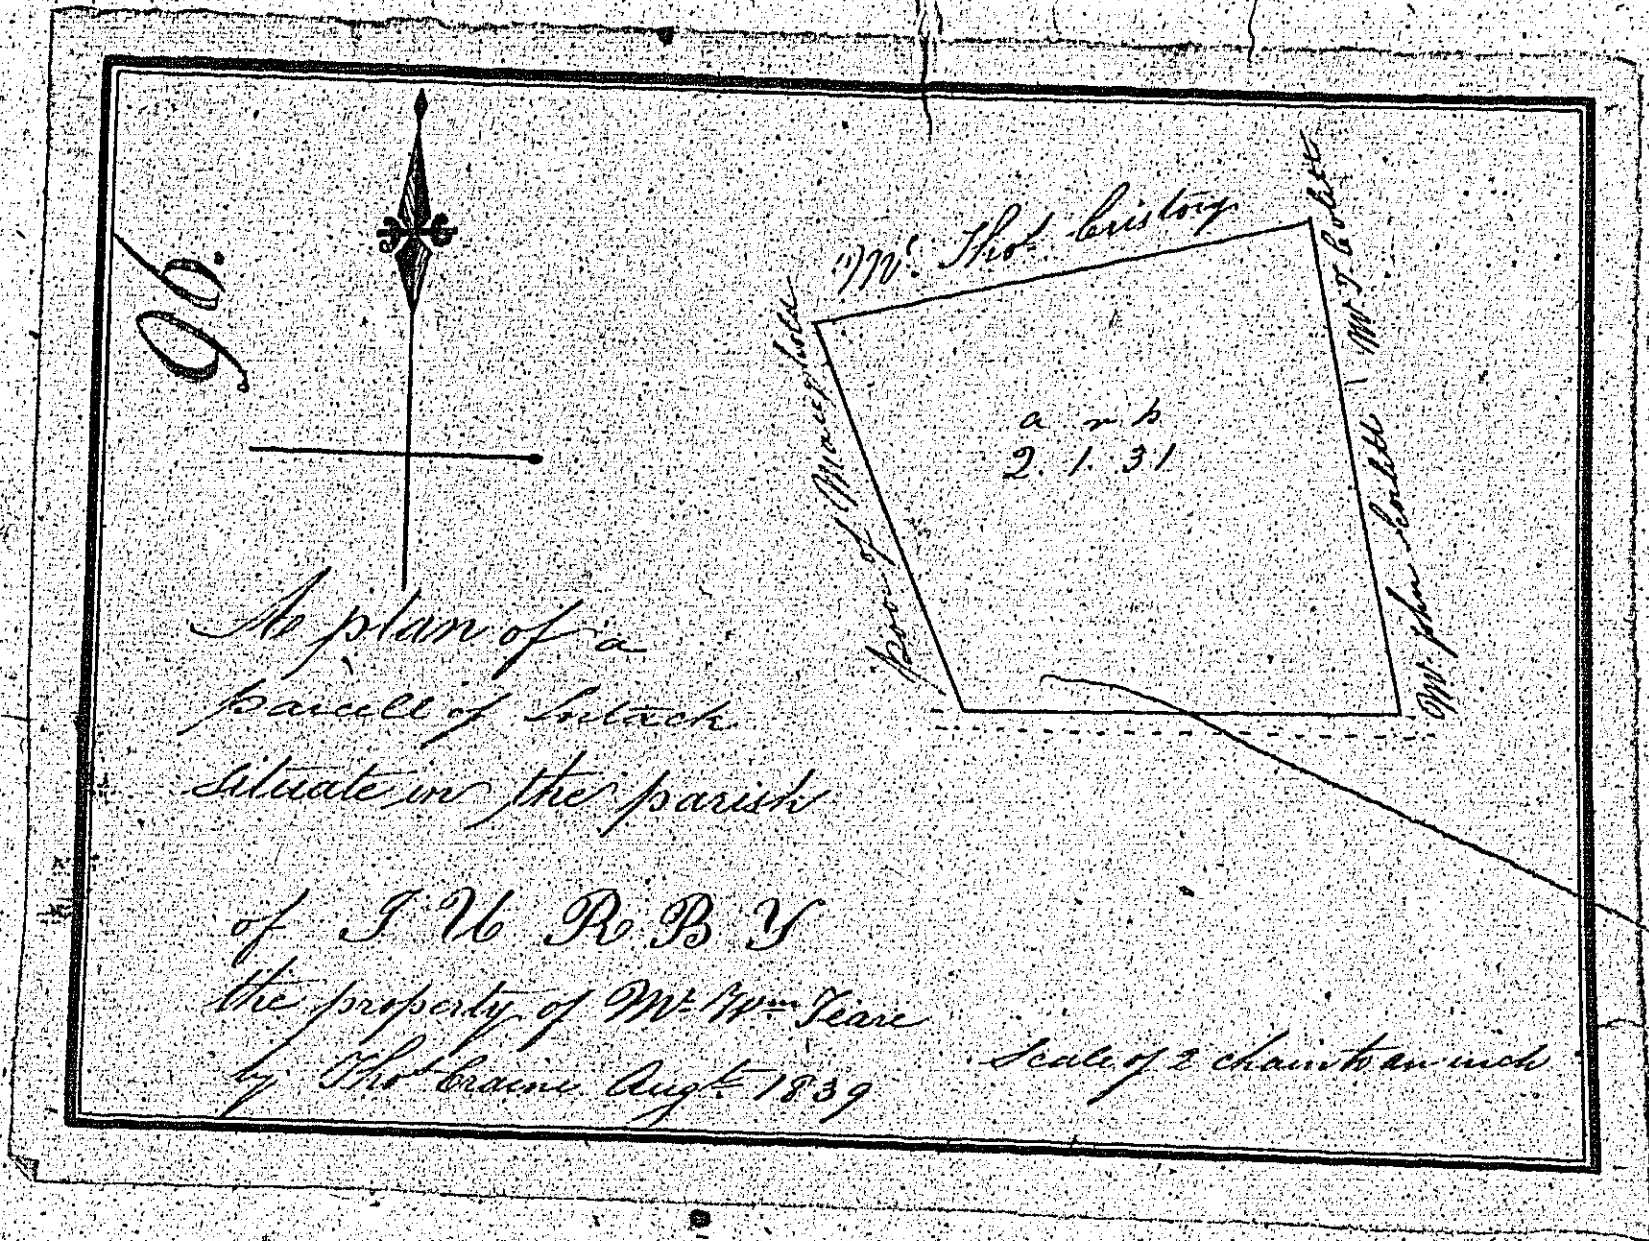 96.
Mr. Thos. Cristory
Mr T Colett
Mr. John Colett
a r p
2. 1. 31
A plan of a
parcell of Intack
situate in the parish
of J U R B Y
the property of Mr. Wm Teare
by Thos Craine Augt. 1839
Scale of 2 chain to an inch